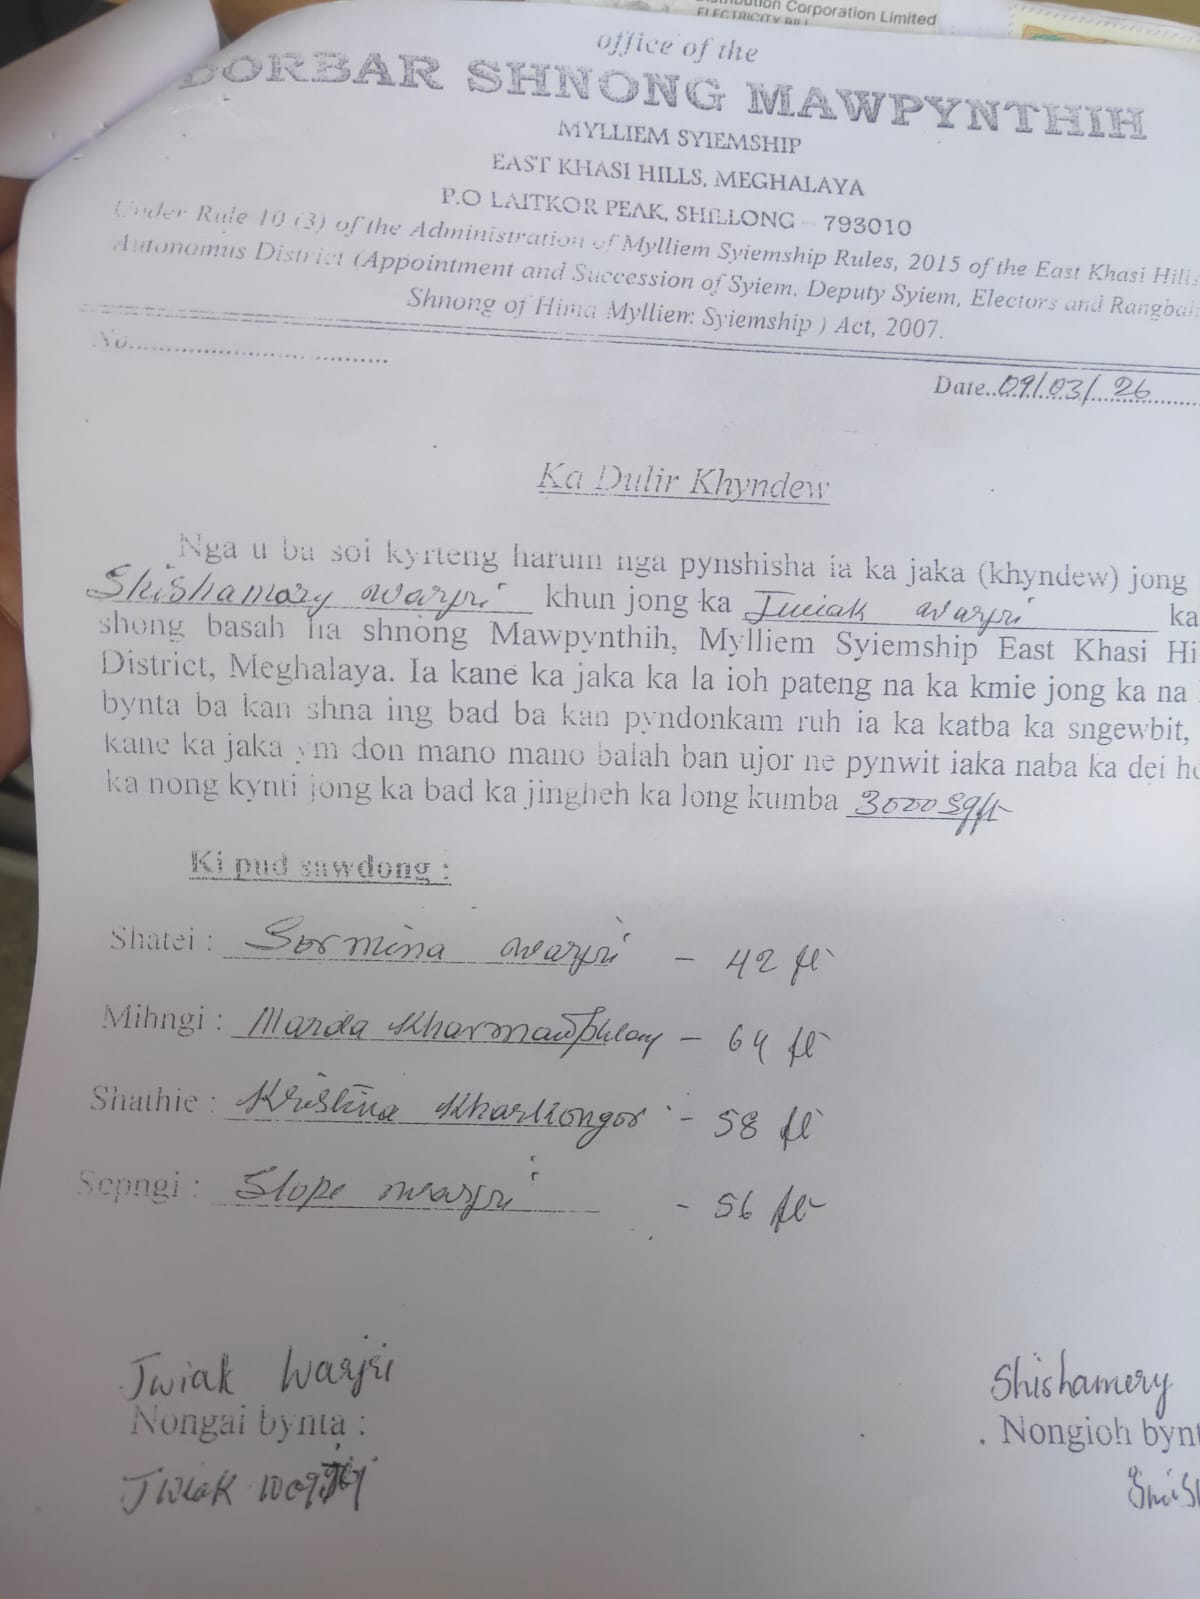 Distribution Corporation Limited
ELECTRICITY BILL
office of the
DORBAR SHNONG MAWPYNTHIH
MYLLIEM SYIEMSHIP
EAST KHASI HILLS, MEGHALAYA
P.O LAITKOR PEAK, SHILLONG - 793010
Under Rule 10 (3) of the Administration of Mylliem Syiemship Rules, 2015 of the East Khasi Hills
Autonomus District (Appointment and Succession of Syiem, Deputy Syiem, Electors and Rangbah
Shnong of Hima Mylliem Syiemship ) Act, 2007.
No..............................
Date..09/03/26
Ka Dulir Khyndew
Nga u ba soi kyrteng harum nga pynshisha ia ka jaka (khyndew) jong
Shishamery warjri khun jong ka Twiak warjri ka
shong basah ha shnong Mawpynthih, Mylliem Syiemship East Khasi Hi
District, Meghalaya. Ia kane ka jaka ka la ioh pateng na ka kmie jong ka na
bynta ba kan shna ing bad ba kan pyndonkam ruh ia ka katba ka sngewbit,
kane ka jaka ym don mano mano balah ban ujor ne pynwit iaka naba ka dei ho
ka nong kynti jong ka bad ka jingheh ka long kumba 3000 sqft
Ki pud sawdong :
Shatei : Sormina warjri - 42 ft
Mihngi : Marda Kharmawphlang - 64 ft
Shathie : Kristina Kharkongor - 58 ft
Sepngi : Slope warjri - 56 ft
Twiak Warjri
Shishamery
Nongai bynta :
. Nongioh bynt
Twiak
Shish